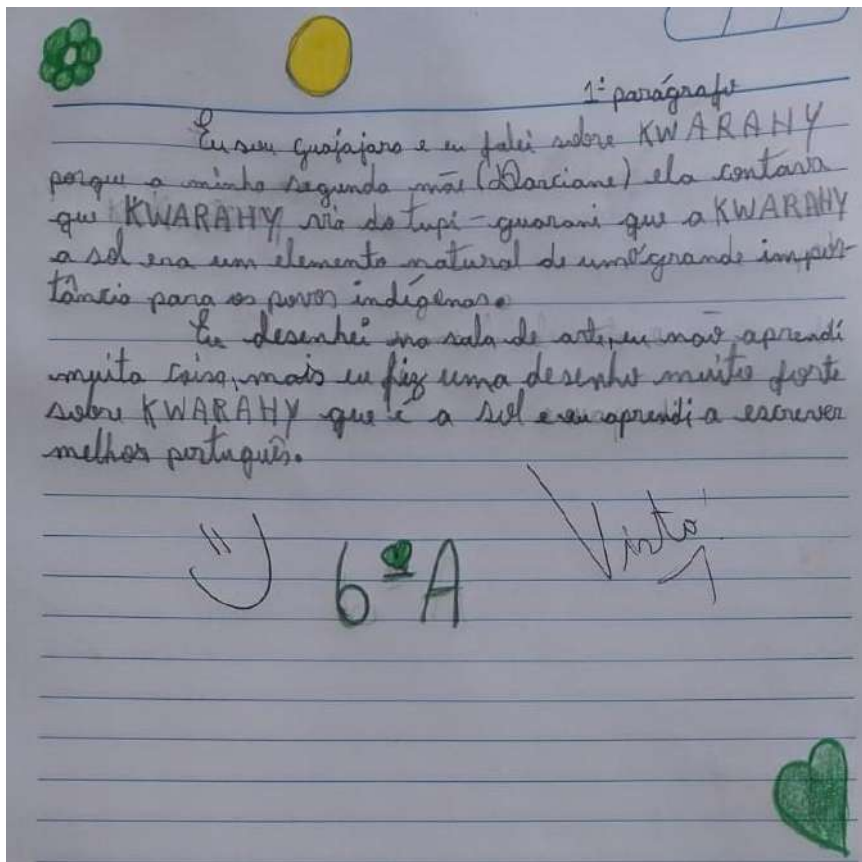 1º parágrafo
Eu sou guajajara e eu falei sobre KWARAHY
porque a minha segunda mãe (Darciane) ela contava
que KWARAHY via do tupi-guarani que a KWARAHY
a sol era um elemento natural de uma grande impor-
tância para os povos indígenas.
Eu desenhei na sala de arte, eu não aprendi
muita coisa, mais eu fiz uma desenho muito forte
sobre KWARAHY que é a sol e eu aprendi a escrever
melhor português.
Visto
6º A